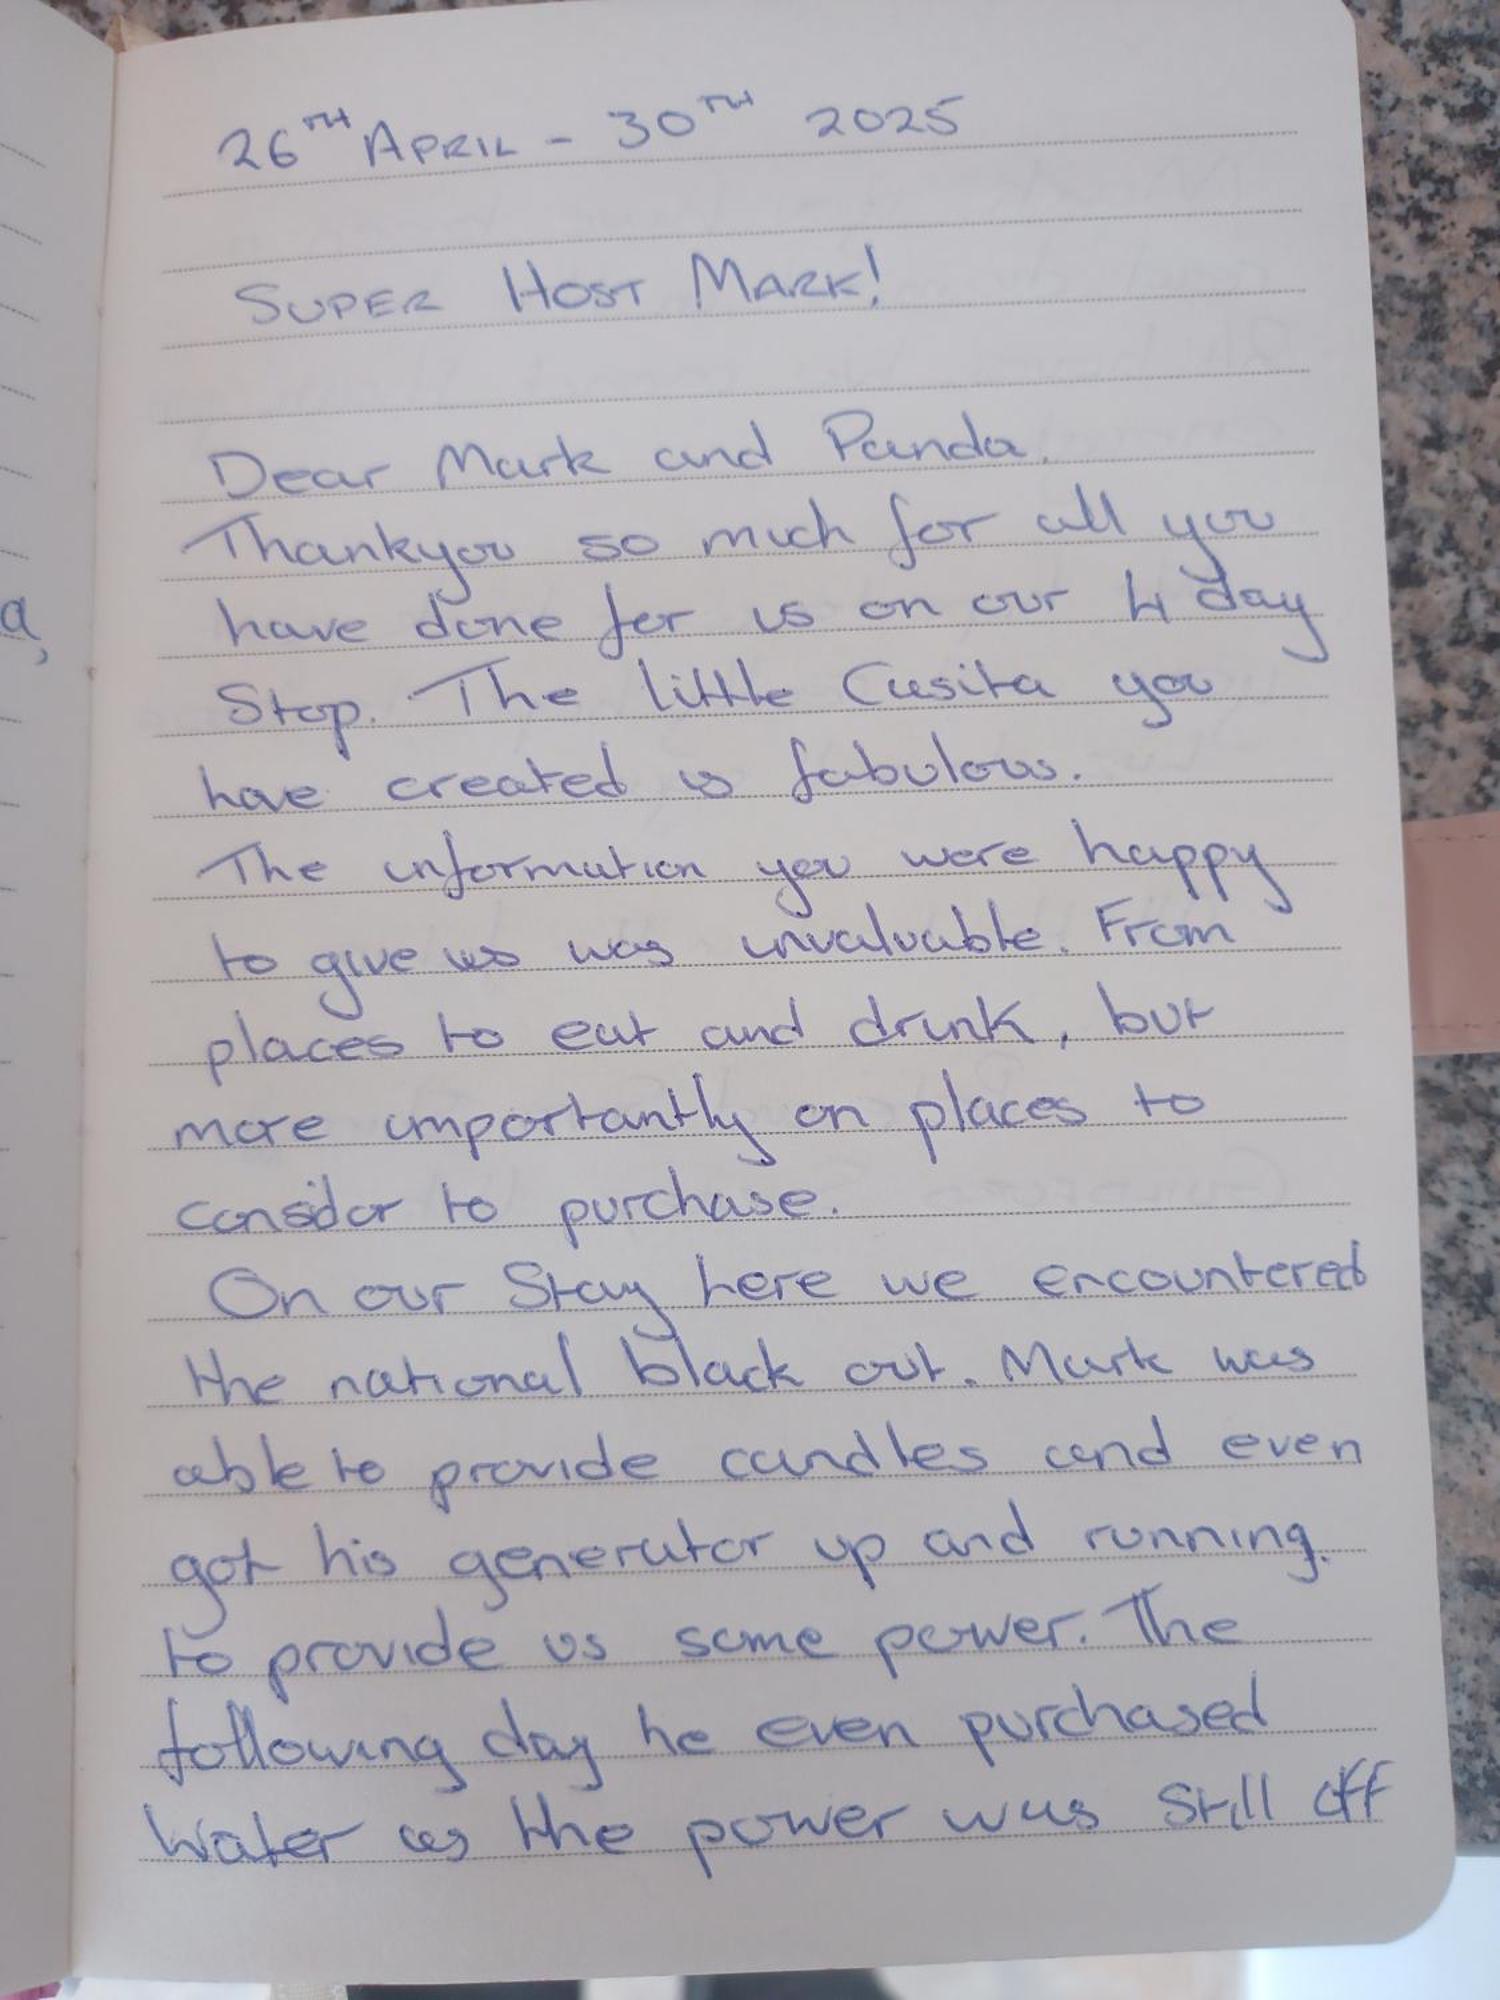 26TH APRIL - 30TH 2025
SUPER HOST MARK!
Dear Mark and Panda.
Thankyou so much for all you
have done for us on our 4 day
Stop. The little Casita you
have created is fabulous.
The information you were happy
to give us was invaluable. From
places to eat and drink, but
more importantly on places to
consider to purchase.
On our Stay here we encountered
the national black out. Mark was
able to provide candles and even
got his generator up and running.
to provide us some power. The
following day he even purchased
Water as the power was Still off
a,